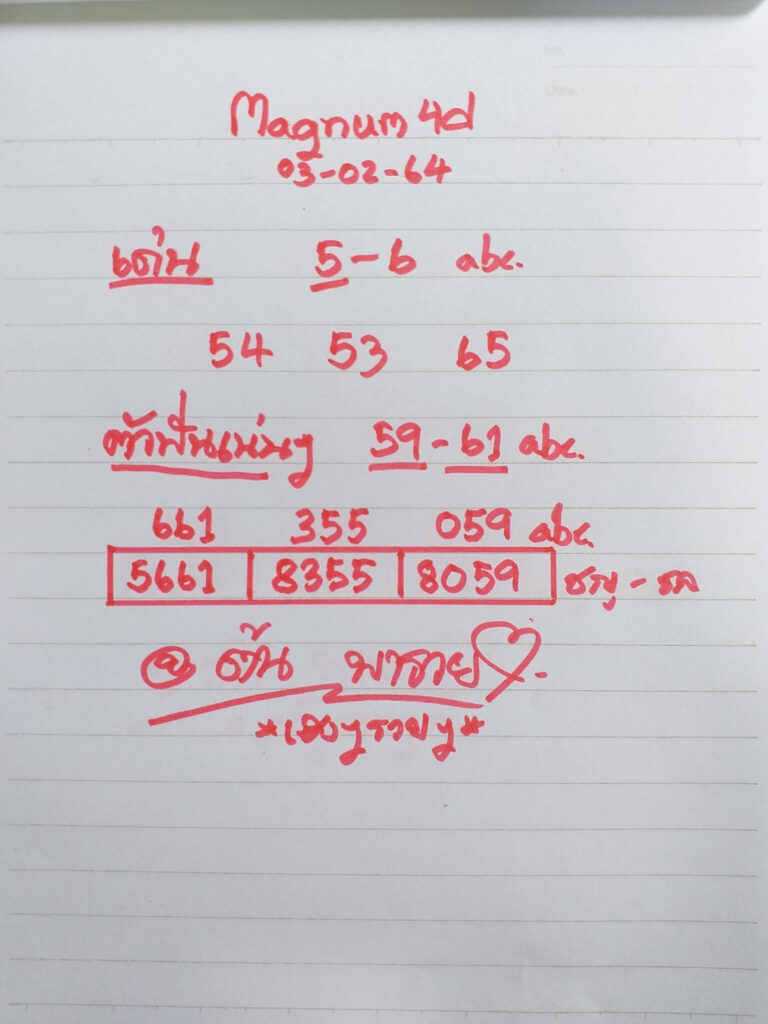 No.
Date. / /
Magnum 4d
03-02-64
เด่น 5-6 abc.
54 53 65
ตัวฟันเน้นๆ 59-61 abc.
661 355 059 abc.
5661 8355 8059
@ ต้น พารวย
*เฮงๆรวยๆ*